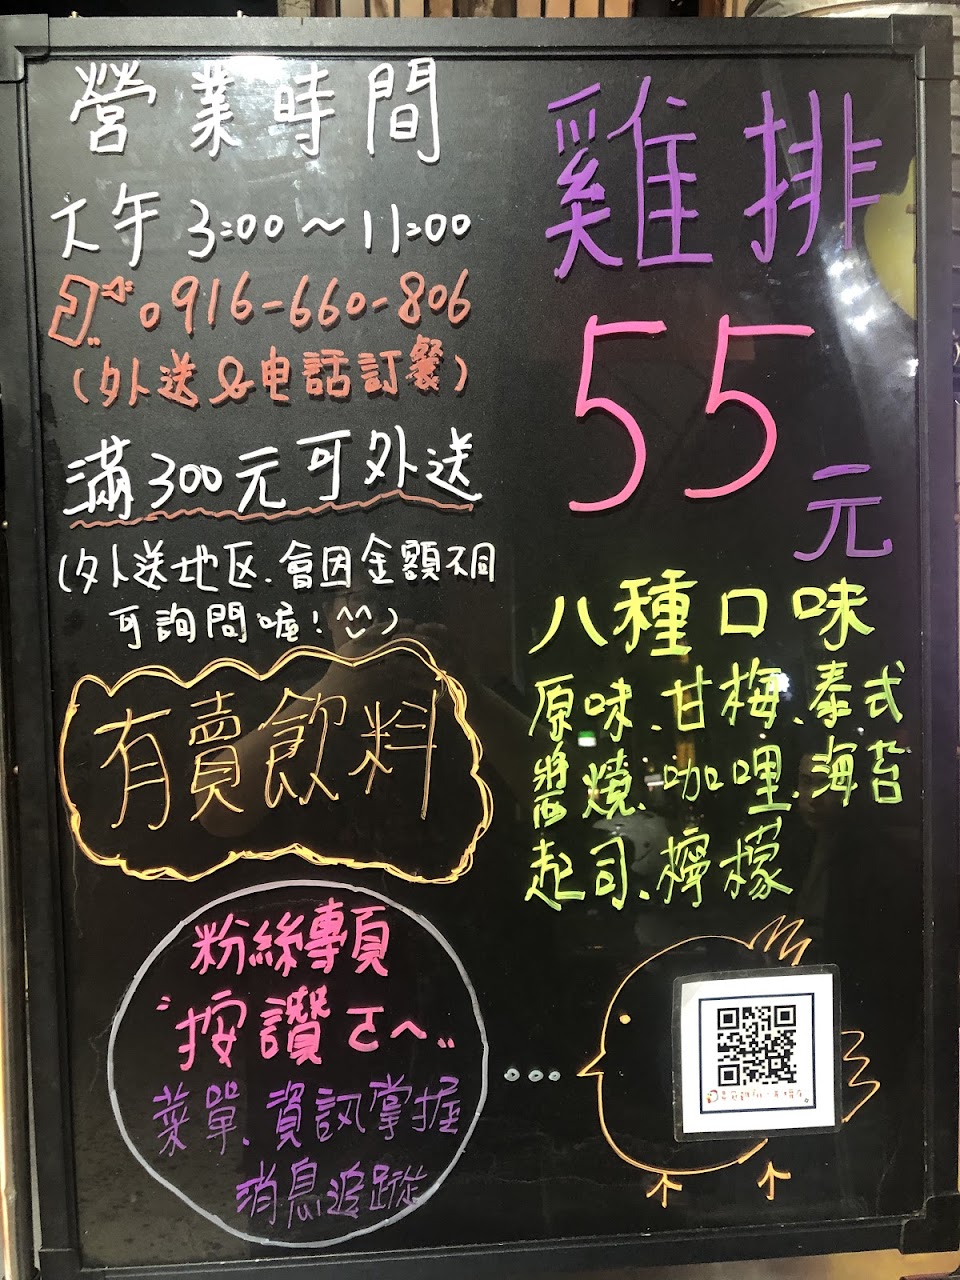 營業時間
下午 3:00～11:00
0916-660-806
(外送&电話訂餐)
滿300元可外送
(外送地区、會因金額不同
可詢問喔! ^^)
有賣飲料
粉絲專頁
按讚ㄛへ..
菜單、資訊掌握
消息追蹤
雞排
55
元
八種口味
原味、甘梅、泰式
醬燒、咖哩、海苔
起司、檸檬